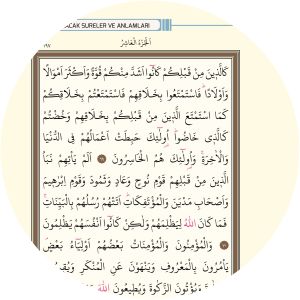 ACAK SURELER VE ANLAMLARI
١٩٧
اَلْجُزْءُ الْعَاشِرُ
كَالَّذ۪ينَ مِنْ قَبْلِكُمْ كَانُٓوا اَشَدَّ مِنْكُمْ قُوَّةً وَاَكْثَرَ اَمْوَالًا
وَاَوْلَادًاۜ فَاسْتَمْتَعُوا بِخَلَاقِهِمْ فَاسْتَمْتَعْتُمْ بِخَلَاقِكُمْ
كَمَا اسْتَمْتَعَ الَّذ۪ينَ مِنْ قَبْلِكُمْ بِخَلَاقِهِمْ وَخُضْتُمْ
كَالَّذ۪ي خَاضُواۜ اُو۬لٰٓئِكَ حَبِطَتْ اَعْمَالُهُمْ فِي الدُّنْيَا
وَالْاٰخِرَةِۚ وَاُو۬لٰٓئِكَ هُمُ الْخَاسِرُونَ ﴿٦٩﴾ اَلَمْ يَأْتِهِمْ نَبَاُ
الَّذ۪ينَ مِنْ قَبْلِهِمْ قَوْمِ نُوحٍ وَعَادٍ وَثَمُودَ وَقَوْمِ اِبْرٰه۪يمَ
وَاَصْحَابِ مَدْيَنَ وَالْمُؤْتَفِكَاتِۜ اَتَتْهُمْ رُسُلُهُمْ بِالْبَيِّنَاتِۚ
فَمَا كَانَ اللّٰهُ لِيَظْلِمَهُمْ وَلٰكِنْ كَانُٓوا اَنْفُسَهُمْ يَظْلِمُونَ
﴿٧٠﴾ وَالْمُؤْمِنُونَ وَالْمُؤْمِنَاتُ بَعْضُهُمْ اَوْلِيَٓاءُ بَعْضٍۢ
يَأْمُرُونَ بِالْمَعْرُوفِ وَيَنْهَوْنَ عَنِ الْمُنْكَرِ وَيُق۪
وَيُؤْتُونَ الزَّكٰوةَ وَيُط۪يعُونَ اللّٰهَ